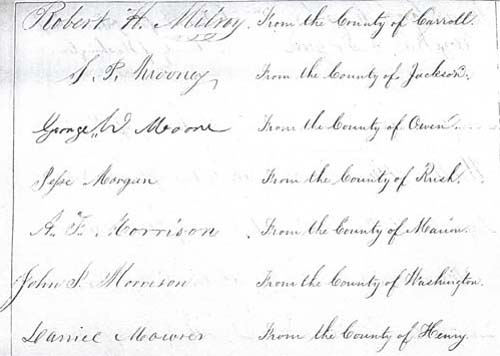 Robert H. Milroy. From the County of Carroll.
S. P. Mooney, From the County of Jackson.
George W. Moore From the County of Owen.
Jesse Morgan From the County of Rush.
A. F. Morrison From the County of Marion.
John I. Morrison From the County of Washington.
Daniel Mowrer From the County of Henry.